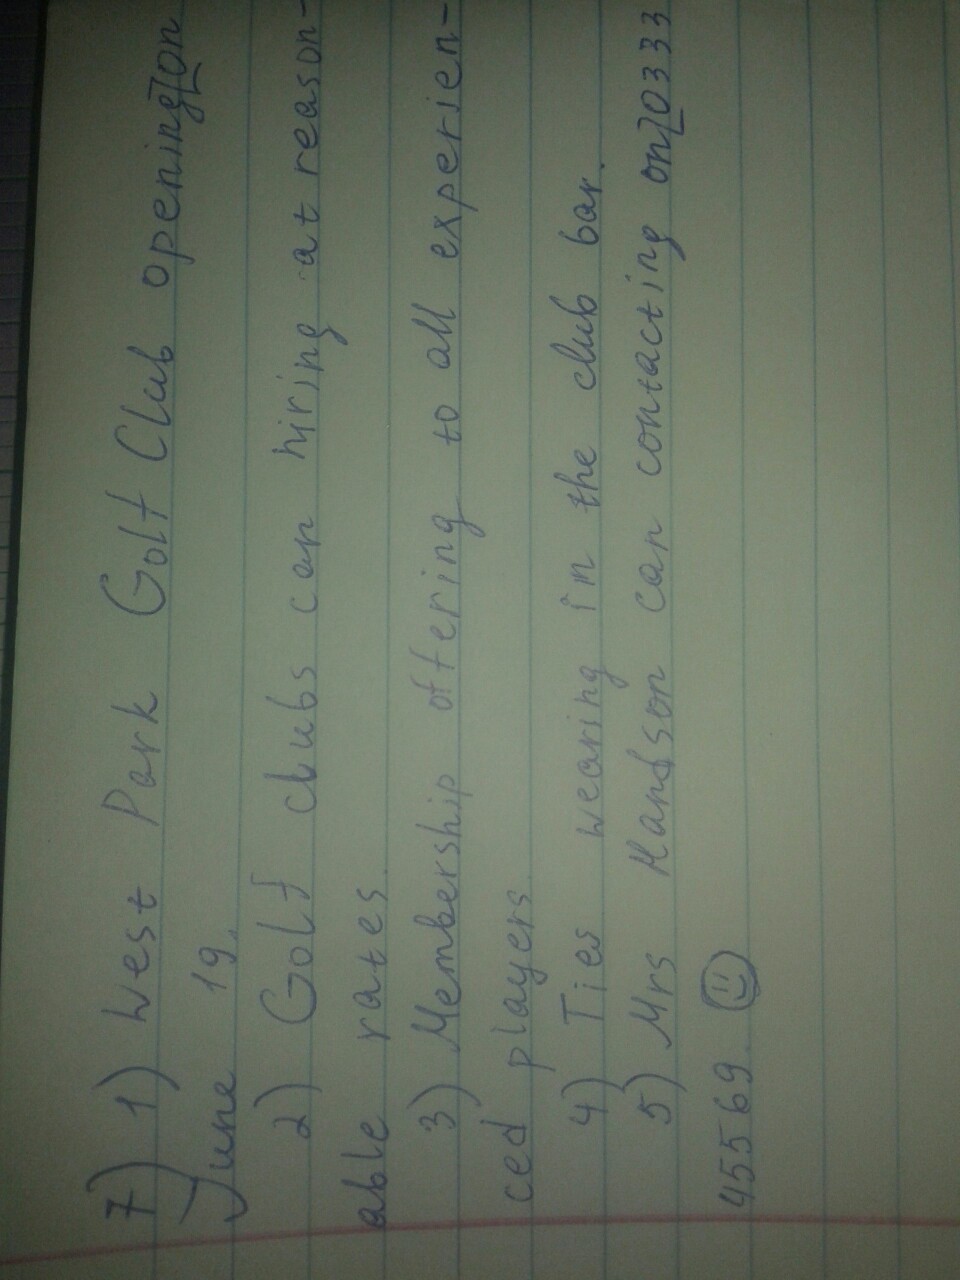 7) 1) West Park Golf Club opening on
June 19.
2) Golf clubs can hiring at reason-
able rates.
3) Membership offering to all experien-
ced players.
4) Ties wearing in the club bar.
5) Mrs Handson can contacting on 0333
45569. ☺